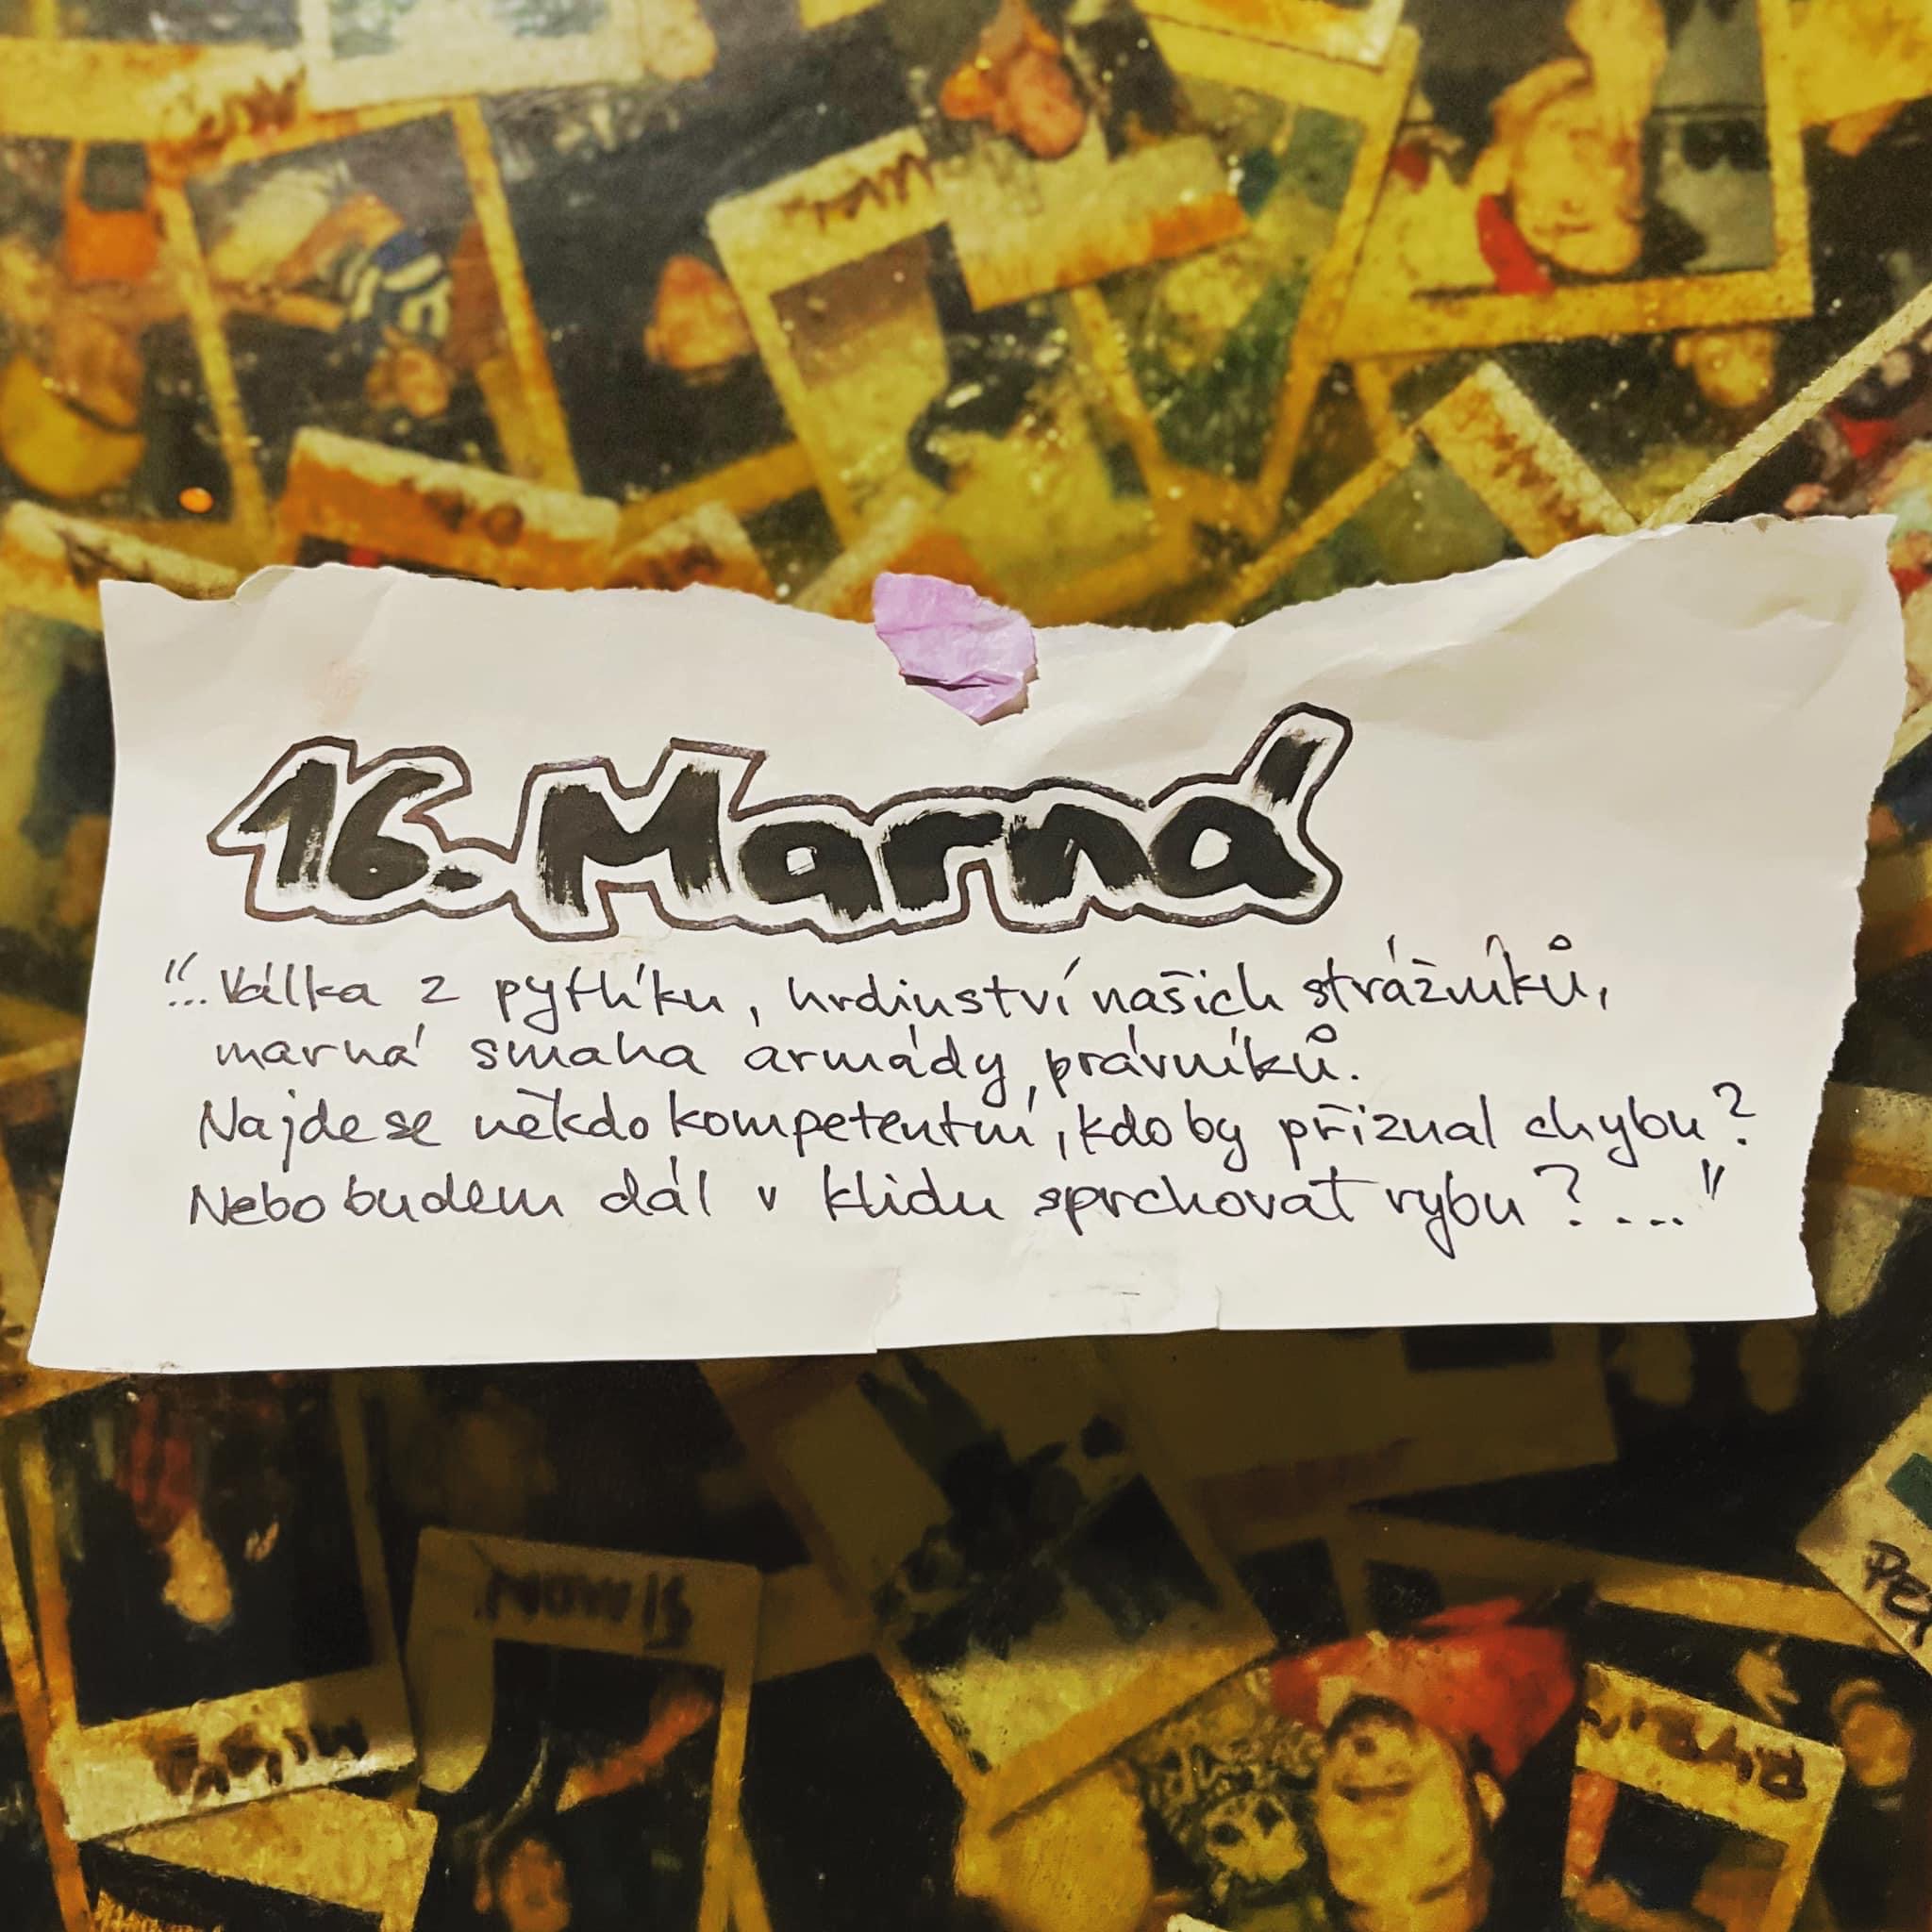 16. Marná
"...Válka z pytlíku, hrdinství našich strážníků,
marná snaha armády, právníků.
Najde se někdo kompetentní, kdo by přiznal chybu?
Nebo budem dál v klidu sprchovat rybu?...."
SIMON